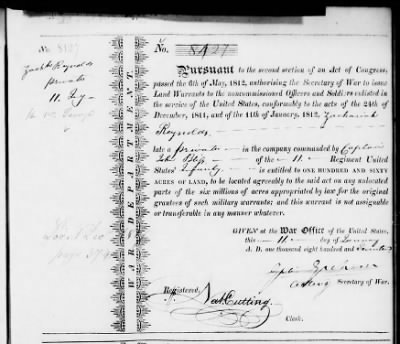 No. 8427
No. 8427
Zach Reynolds
private
11. Inf
PURSUANT to the second section of an Act of Congress,
passed the 6th of May, 1812, authorising the Secretary of War to issue
Land Warrants to the noncommissioned Officers and Soldiers enlisted in
the service of the United States, conformably to the acts of the 24th of
December, 1811, and of the 11th of January, 1812, Zachariah
Reynolds
late a private in the company commanded by Captain
Bliss of the 11 Regiment United
States' Infantry is entitled to ONE HUNDRED AND SIXTY
ACRES OF LAND, to be located agreeably to the said act on any unlocated
parts of the six millions of acres appropriated by law for the original
grantees of such military warrants; and this warrant is not assignable
or transferable in any manner whatever.
GIVEN at the War Office of the United States,
this 11 day of January
A. D. one thousand eight hundred and
Acting Secretary of War.
Registered,
Nat Cutting
Clerk.
WAR DEPARTMENT